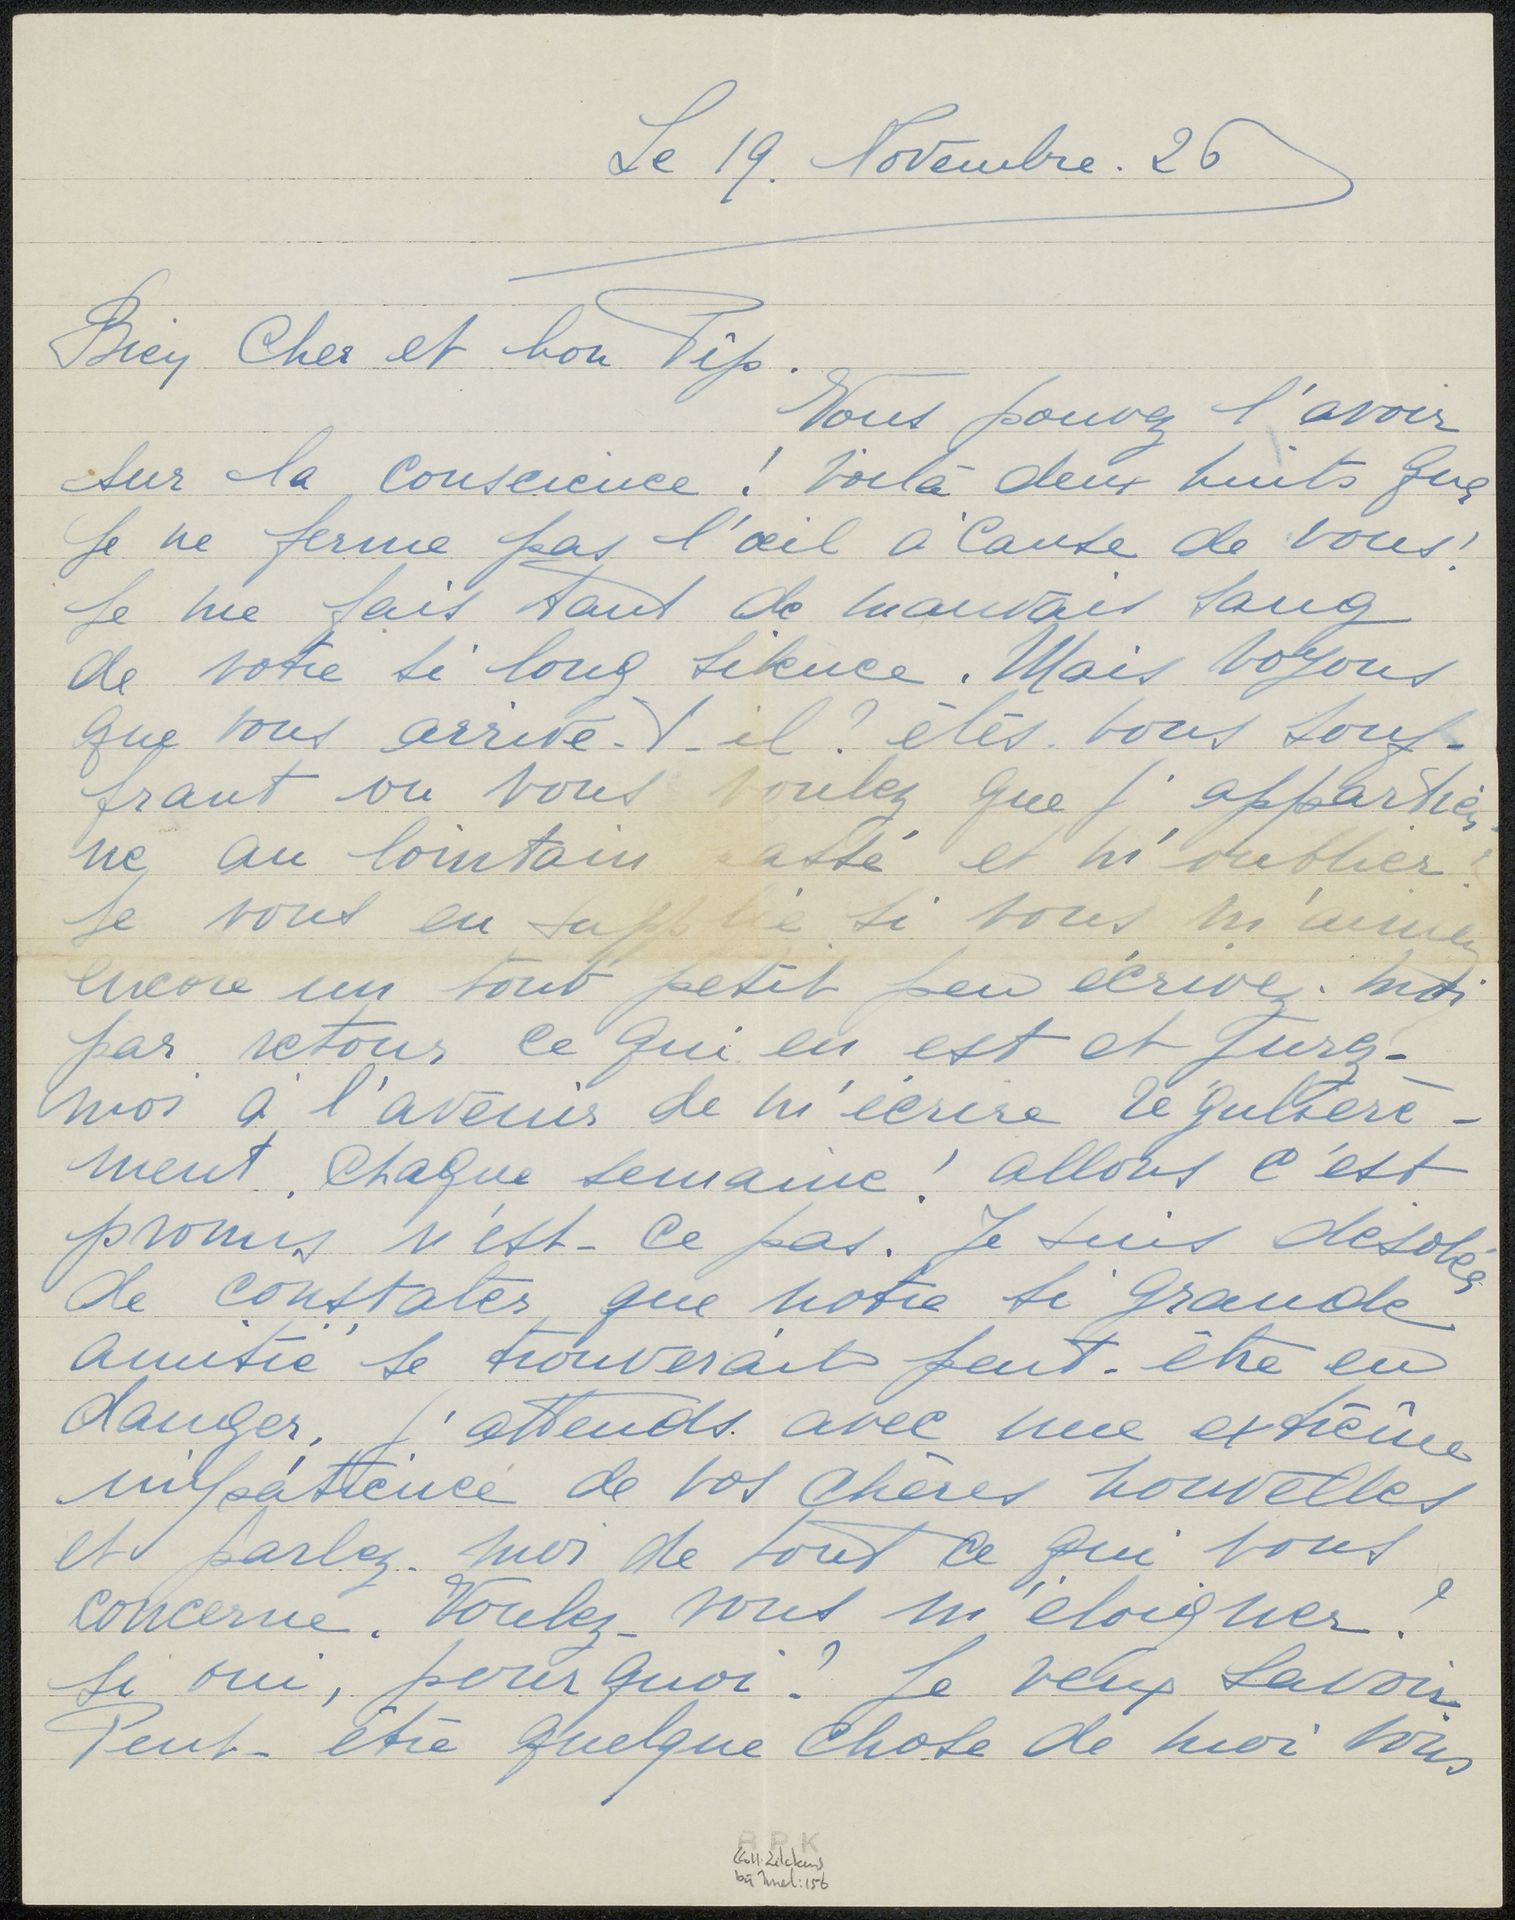 Le 19. Novembre. 26
Bien Cher et bon Pip.
Vous pouvez l'avoir
sur la conscience! voilà deux nuits que
je ne ferme pas l'œil à cause de vous!
Je me fais tant de mauvais sang
de votre si long silence. Mais voyons
que vous arrive-t-il? êtes-vous souf-
frant ou vous voulez que j'appartien-
ne au lointain passé et m'oublier?
Je vous en supplie si vous m'aimez
encore un tout petit peu écrivez-moi
par retour ce qui en est et jurez-
moi à l'avenir de m'écrire régulière-
ment, chaque semaine! allons c'est
promis n'est-ce pas. Je suis désolée
de constater que notre si grande
amitié se trouverait peut-être en
danger, j'attends avec une extrême
impatience de vos chères nouvelles
et parlez-moi de tout ce qui vous
concerne. Voulez-vous m'éloigner?
si oui, pourquoi? Je veux savoir
Peut-être quelque chose de moi vous
RPK
Coll. Zilcken